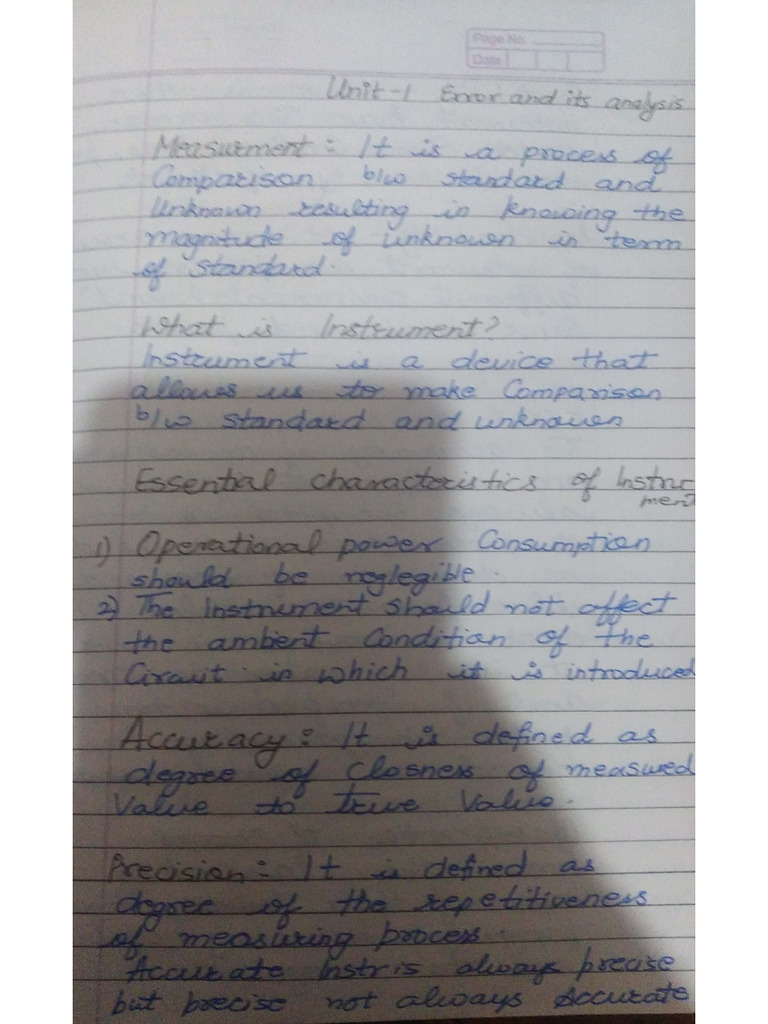 Page No.
Date
Unit-1 Error and its analysis
Measurment : It is a process of
Comparison b/w standard and
Unknown resulting in knowing the
magnitude of unknown in term
of standard.
What is Instrument?
Instrument is a device that
allows us to make Comparison
b/w standard and unknown
Essential characteristics of Instru
ment
1) Operational power Consumption
should be neglegible.
2) The Instrument should not affect
the ambient Condition of the
Circuit in which it is introduced
Accuracy : It is defined as
degree of closness of measured
Value to true Value.
Precision : It is defined as
degree of the repetitiveness
of measuring process.
Accurate Instr is always precise
but precise not always Accurate